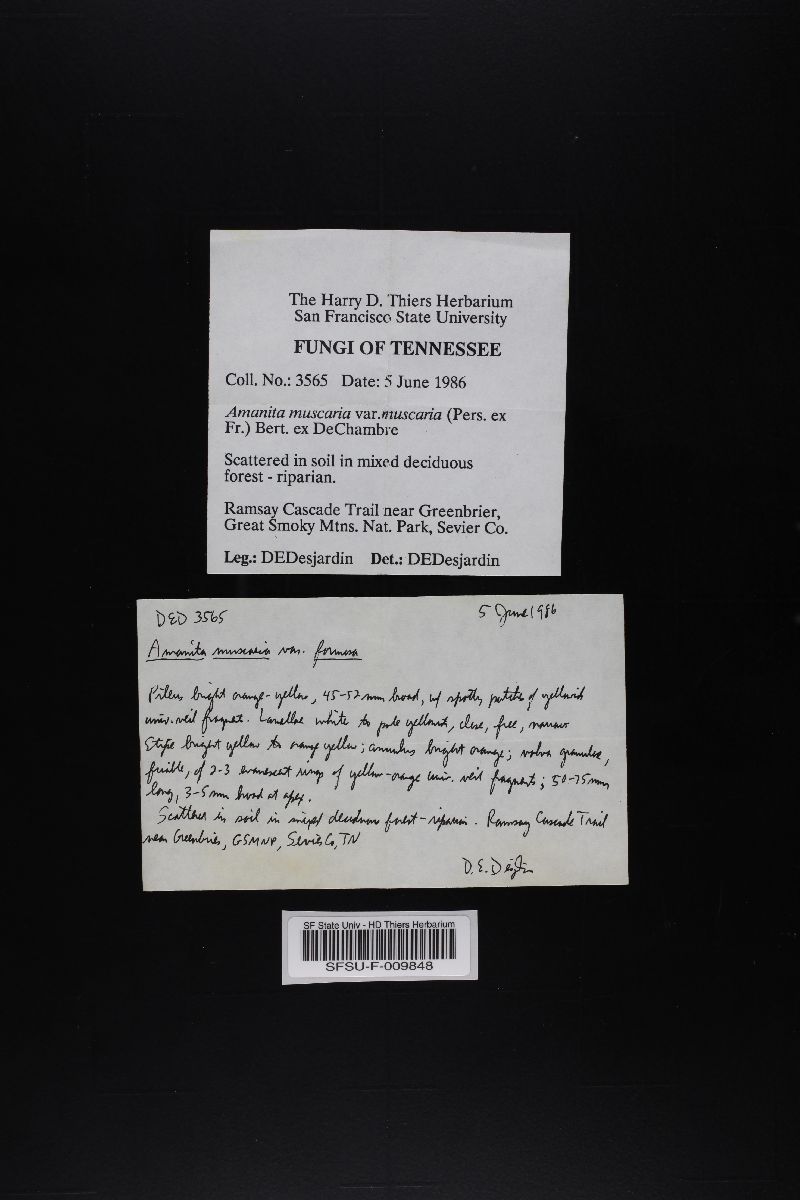 The Harry D. Thiers Herbarium
San Francisco State University
FUNGI OF TENNESSEE
Coll. No.: 3565 Date: 5 June 1986
Amanita muscaria var.muscaria (Pers. ex
Fr.) Bert. ex DeChambre
Scattered in soil in mixed deciduous
forest - riparian.
Ramsay Cascade Trail near Greenbrier,
Great Smoky Mtns. Nat. Park, Sevier Co.
Leg.: DEDesjardin Det.: DEDesjardin
DED 3565 5 June 1986
Amanita muscaria var. formosa
Pileus bright orange-yellow, 45-52 mm broad, w/ spotty patches of yellowish
univ. veil fragment. Lamellae white to pale yellowish, close, free, narrow
Stipe bright yellow to orange yellow; annulus bright orange; volva granulose,
friable, of 2-3 evanescent rings of yellow-orange univ. veil fragments; 50-75mm
long, 3-5mm broad at apex.
Scattered in soil in mixed deciduous forest - riparian. Ramsay Cascade Trail
near Greenbrier, GSMNP, Sevier Co, TN
D.E. Desjardin
SF State Univ - HD Thiers Herbarium
SFSU-F-009848